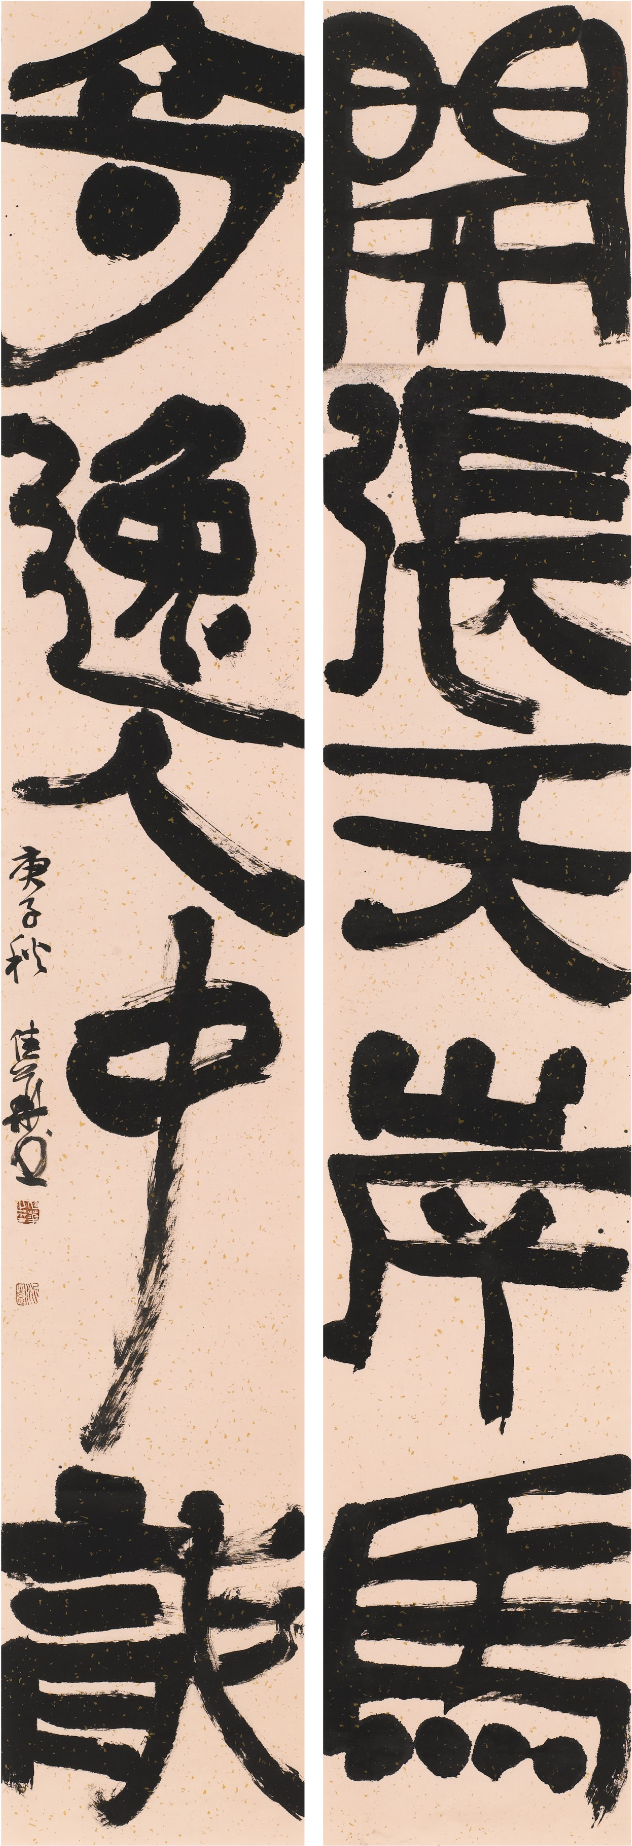 開張天岸馬
奇逸人中龍
庚子秋